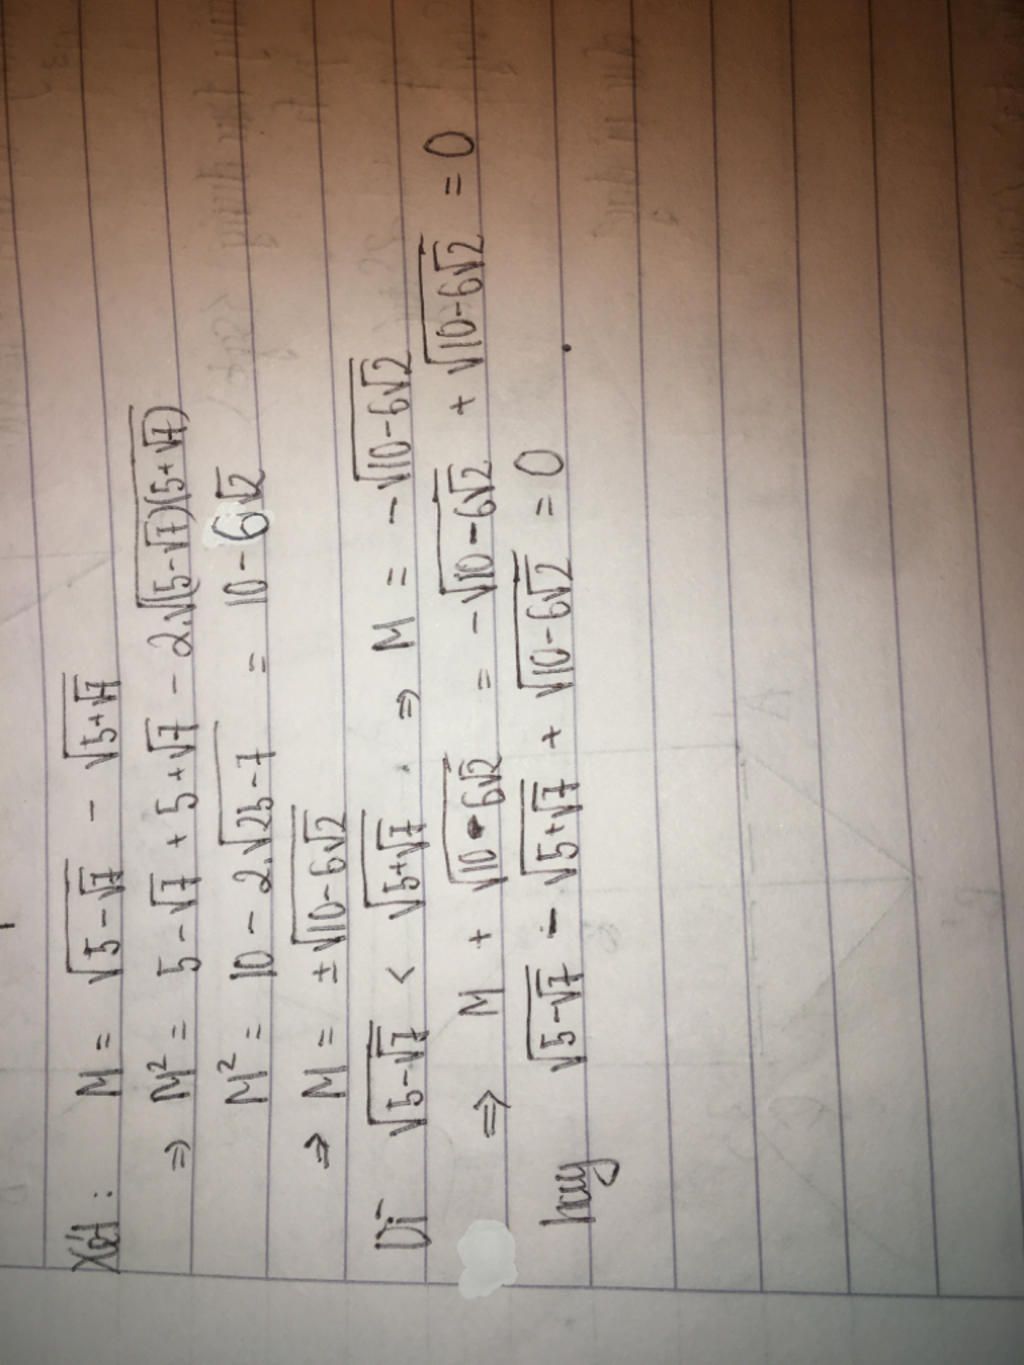 Xét : M = √(5-√7) - √(5+√7)
⇒ M² = 5-√7 + 5+√7 - 2.√((5-√7)(5+√7))
M² = 10 - 2.√(25-7) = 10-6√2
⇒ M = ±√(10-6√2)
Vì √(5-√7) < √(5+√7) . ⇒ M = -√(10-6√2)
⇒ M + √(10-6√2) = -√(10-6√2) + √(10-6√2) = 0
hay √(5-√7) - √(5+√7) + √(10-6√2) = 0